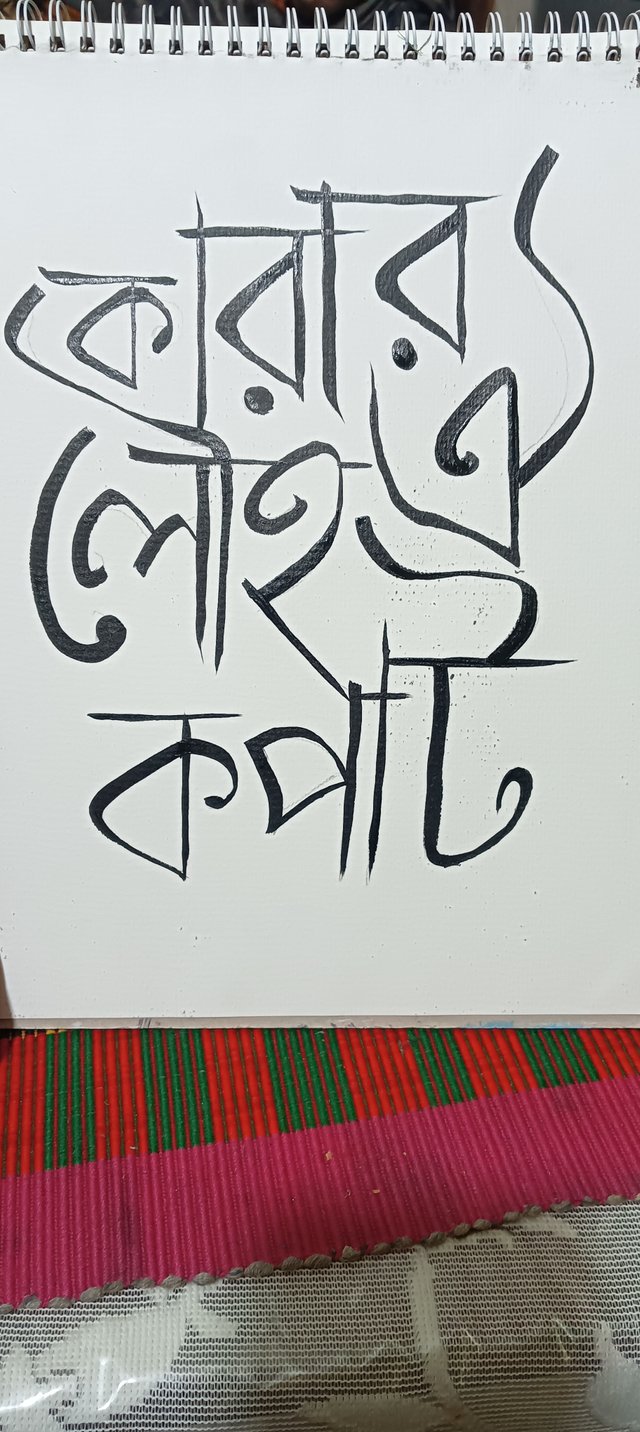 কারার ঐ
লৌহ
কপাট